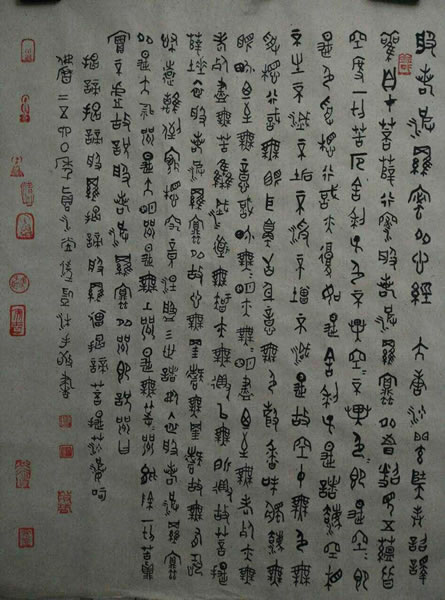 般若波羅蜜多心經 大唐沙門玄奘詔譯
觀自在菩薩行深般若波羅蜜多時照見五蘊皆
空度一切苦厄舍利子色不異空空不異色色即是空空即
是色受想行識亦復如是舍利子是諸法空相
不生不滅不垢不淨不增不減是故空中無色無
受想行識無眼耳鼻舌身意無色聲香味觸法無
眼界乃至無意識界無無明亦無無明盡乃至無老死亦無
老死盡無苦集滅道無智亦無得以無所得故菩提
薩埵依般若波羅蜜多故心無罣礙無罣礙故無有恐
怖遠離顛倒夢想究竟涅槃三世諸佛依般若波羅蜜
知是大神咒是大明咒是無上咒是無等等咒能除一切苦真
實不虛故說般若波羅蜜多咒即說咒曰
揭諦揭諦般羅揭諦般羅僧揭諦菩提薩婆訶
佛曆二五四〇年